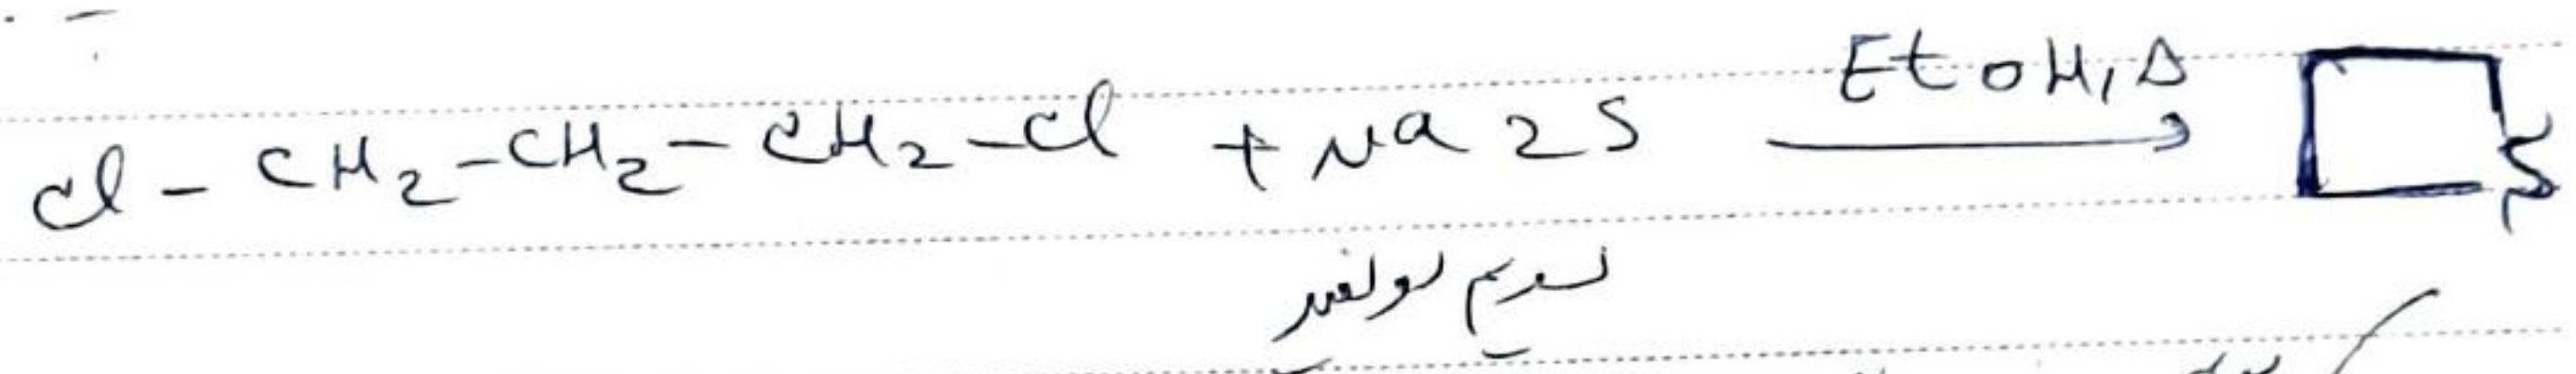 Cl - CH2 - CH2 - CH2 - Cl + Na2S EtOH, Δ → S
سدیم سولفید